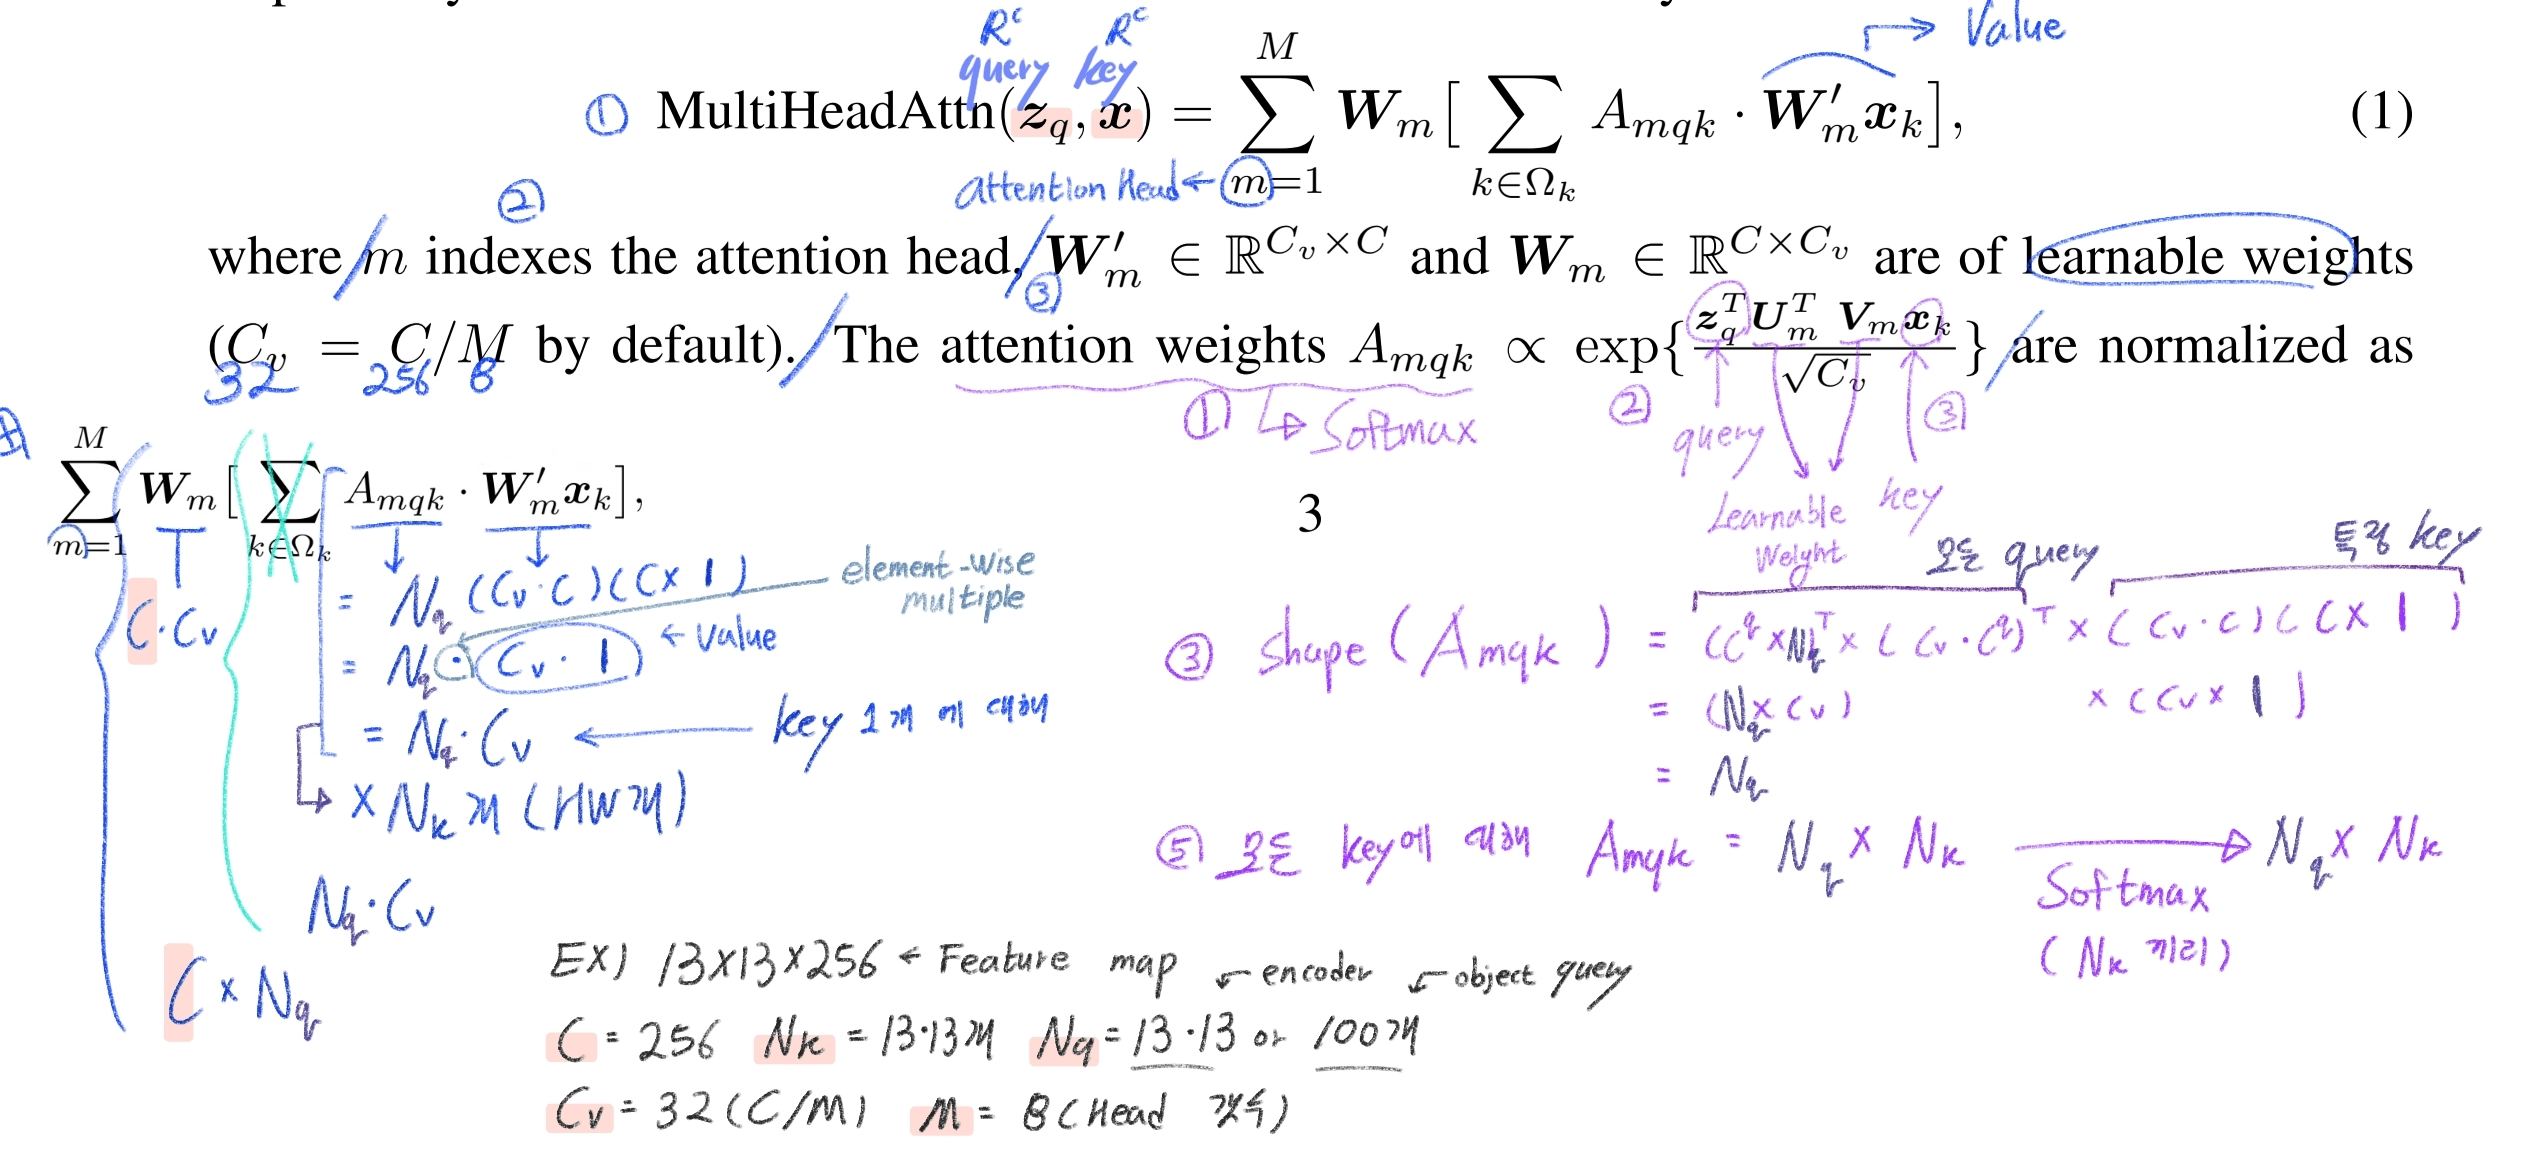 R^C R^C
query key → Value
① MultiHeadAttn(z_q, x) = ∑_{m=1}^{M} W_m [ ∑_{k∈Ω_k} A_{mqk} · W'_m x_k ], (1)
attention Head ←
②
where m indexes the attention head, W'_m ∈ ℝ^{C_v×C} and W_m ∈ ℝ^{C×C_v} are of learnable weights
③
(C_v = C/M by default). The attention weights A_{mqk} ∝ exp{ z_q^T U_m^T V_m x_k / √C_v } are normalized as
32 256 8
① ↳ Softmax ② query ③ key
Learnable Weight
3
∑_{m=1}^{M} W_m [ ∑_{k∈Ω_k} A_{mqk} · W'_m x_k ],
C·C_v
= N_q (C_v·C)(C×1)
element-wise multiple
= N_q ⊙ (C_v·1) ← Value
= N_q·C_v ← key 1개에 대해
→ × N_k개 (HW개)
N_q·C_v
C × N_q
모든 query 특정 key
③ Shape (A_{mqk}) = (C^q × N_q)^T × (C_v·C^q)^T × (C_v·C)(C×1)
= (N_q × C_v) × (C_v × 1)
= N_q
⑤ 모든 key에 대해 A_{mqk} = N_q × N_k → N_q × N_k
Softmax
(N_k 끼리)
EX) 13×13×256 ← Feature map ↙ encoder ↙ object query
C = 256 N_k = 13·13개 N_q = 13·13 or 100개
C_v = 32 (C/M) M = 8 (Head 갯수)